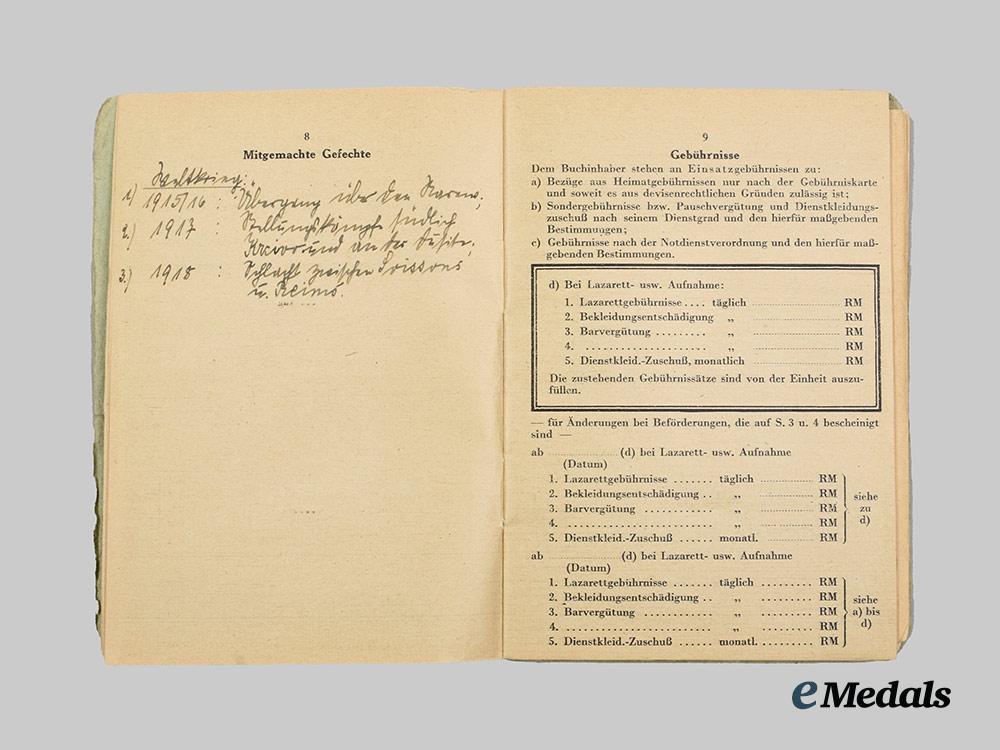 8
Mitgemachte Gefechte
Weltkrieg:
1.) 1915/16 : Übergang über den Narew;
2.) 1917 : Stellungskämpfe südlich
und an der
3.) 1918 : Schlacht zwischen Soissons
u. Reims.
9
Gebührnisse
Dem Buchinhaber stehen an Einsatzgebührnissen zu:
a) Bezüge aus Heimatgebührnissen nur nach der Gebührniskarte
und soweit es aus devisenrechtlichen Gründen zulässig ist;
b) Sondergebührnisse bzw. Pauschvergütung und Dienstkleidungs-
zuschuß nach seinem Dienstgrad und den hierfür maßgebenden
Bestimmungen;
c) Gebührnisse nach der Notdienstverordnung und den hierfür maß-
gebenden Bestimmungen.
d) Bei Lazarett- usw. Aufnahme:
1. Lazarettgebührnisse .... täglich .......... RM
2. Bekleidungsentschädigung „ .......... RM
3. Barvergütung ......... „ .......... RM
4. ..................... „ .......... RM
5. Dienstkleid.-Zuschuß, monatlich .......... RM
Die zustehenden Gebührnissätze sind von der Einheit auszu-
füllen.
— für Änderungen bei Beförderungen, die auf S. 3 u. 4 bescheinigt
sind —
ab .......... (d) bei Lazarett- usw. Aufnahme
(Datum)
1. Lazarettgebührnisse ....... täglich .......... RM
2. Bekleidungsentschädigung .. „ .......... RM
3. Barvergütung ............ „ .......... RM
4. ........................ „ .......... RM
5. Dienstkleid.-Zuschuß ...... monatl. .......... RM
siehe
zu
d)
ab .......... (d) bei Lazarett- usw. Aufnahme
(Datum)
1. Lazarettgebührnisse ....... täglich ......... RM
2. Bekleidungsentschädigung .. „ ......... RM
3. Barvergütung ............ „ ......... RM
4. ........................ „ ......... RM
5. Dienstkleid.-Zuschuß ...... monatl. ......... RM
siehe
a) bis
d)
eMedals